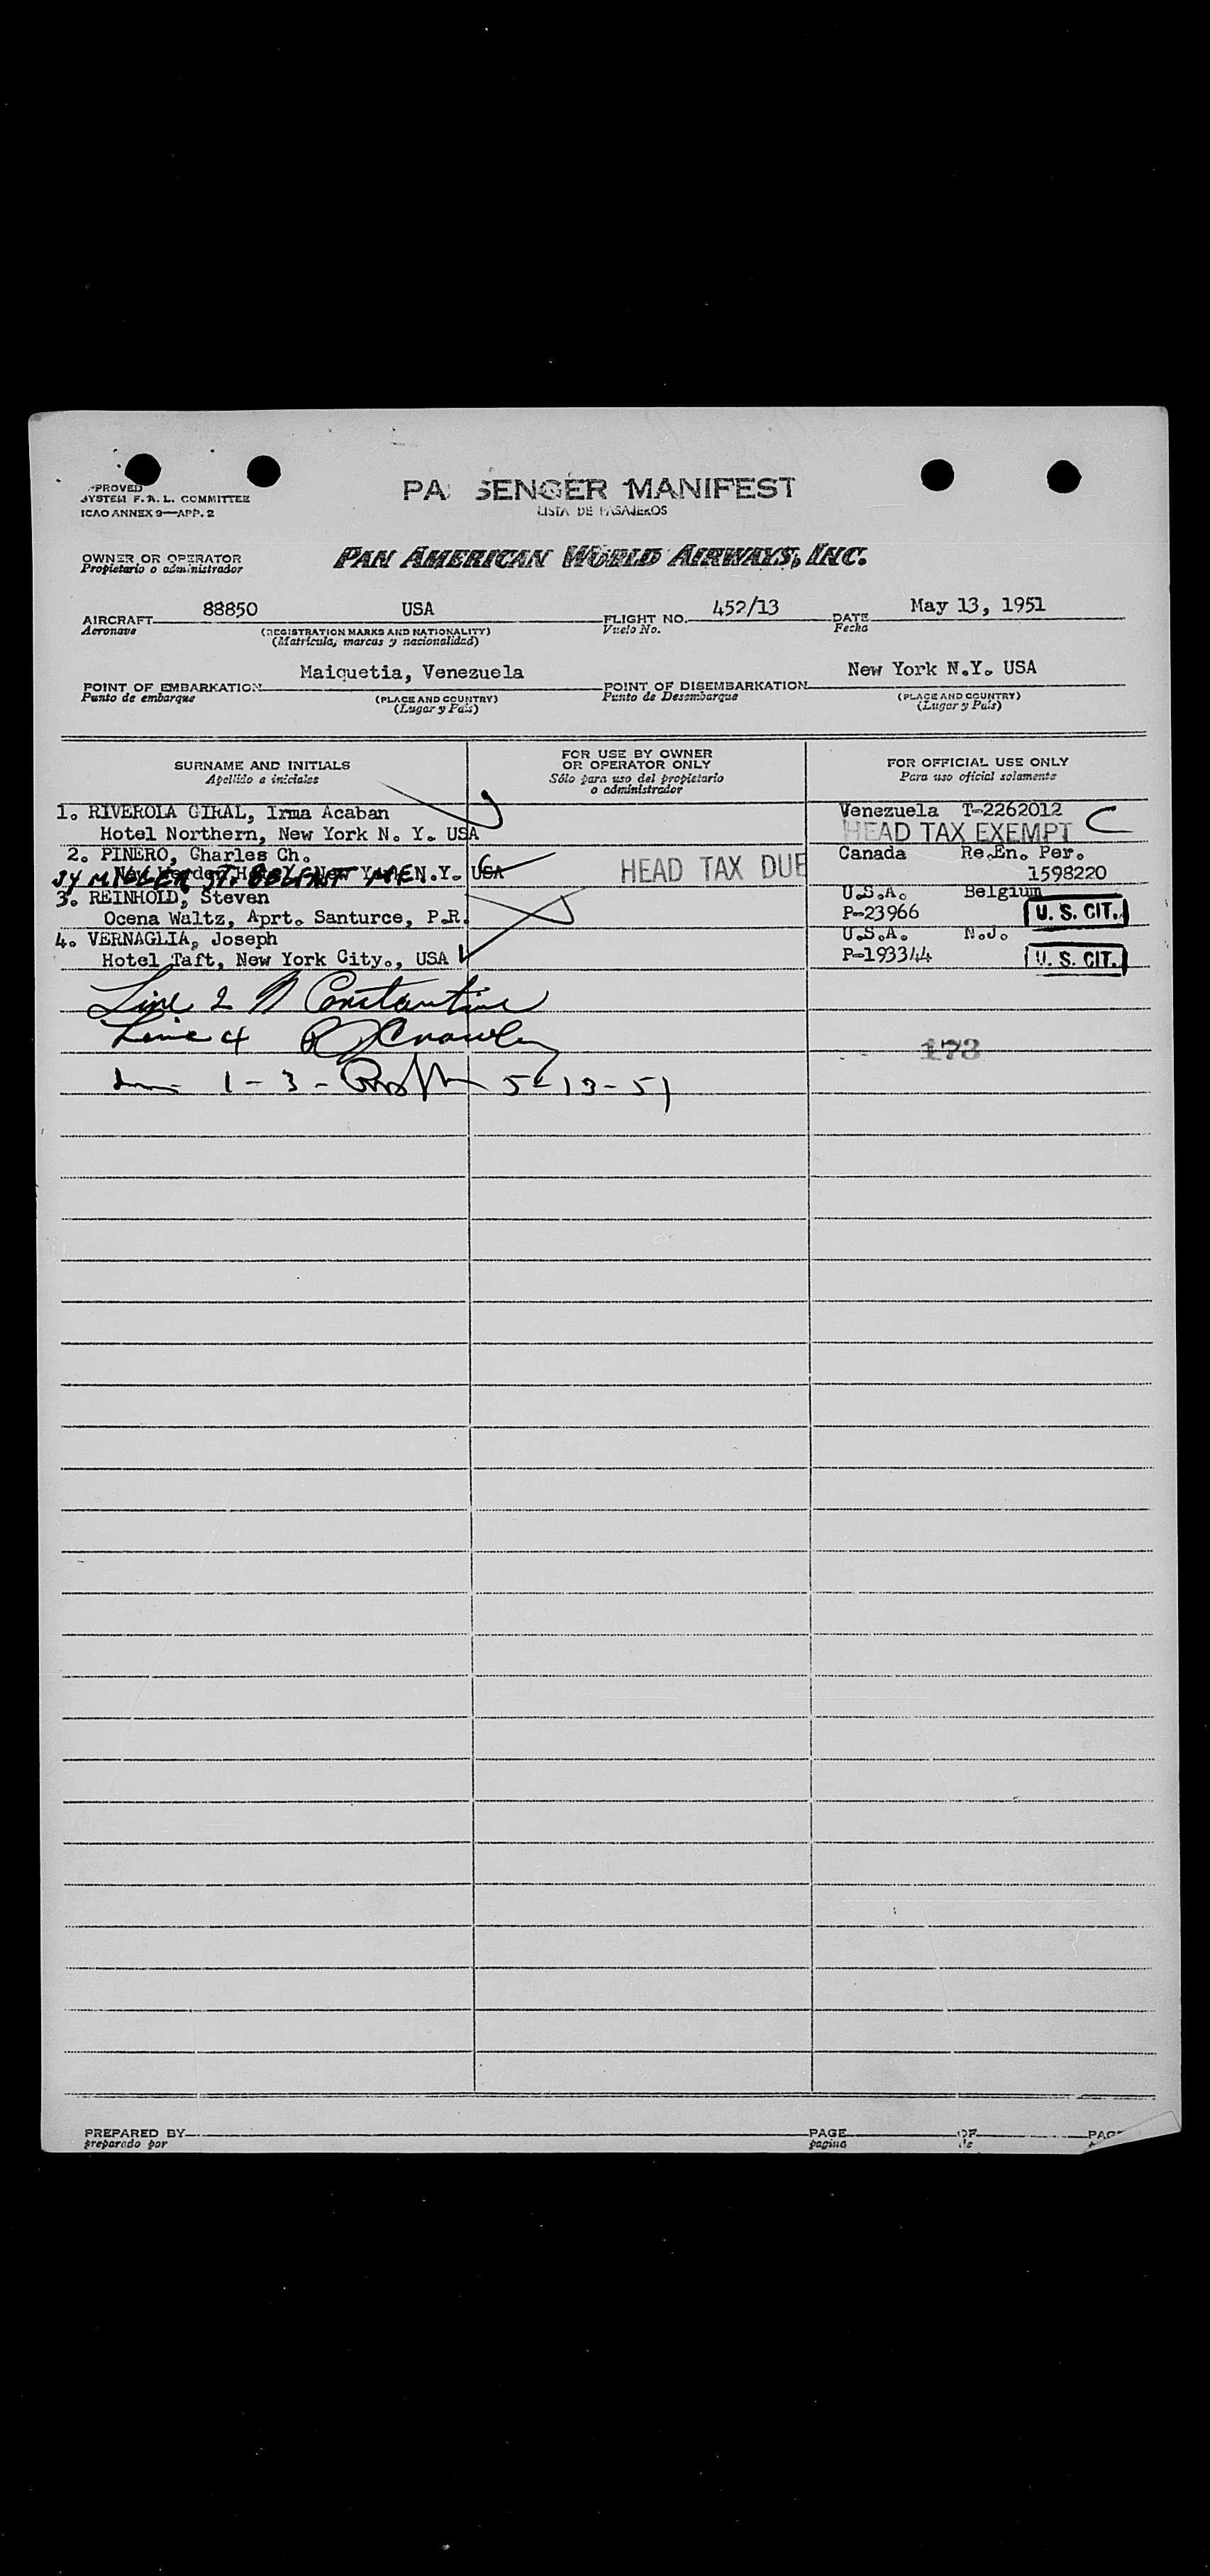 PROVED
SYSTEM F. A. L. COMMITTEE
ICAO ANNEX 9—APP. 2
PA SENGER MANIFEST
LISTA DE PASAJEROS
OWNER OR OPERATOR
Propietario o administrador
PAN AMERICAN WORLD AIRWAYS, INC.
AIRCRAFT 88850 USA FLIGHT NO. 452/13 DATE May 13, 1951
Aeronave (REGISTRATION MARKS AND NATIONALITY) Vuelo No. Fecha
(Matricula, marcas y nacionalidad)
POINT OF EMBARKATION Maiquetia, Venezuela POINT OF DISEMBARKATION New York N.Y. USA
Punto de embarque (PLACE AND COUNTRY) Punto de Desembarque (PLACE AND COUNTRY)
(Lugar y País) (Lugar y País)
SURNAME AND INITIALS
Apellido a iniciales
FOR USE BY OWNER
OR OPERATOR ONLY
Sólo para uso del propietario
o administrador
FOR OFFICIAL USE ONLY
Para uso oficial solamente
1. RIVEROLA GIRAL, Irma Acaban Venezuela T-2262012 C
Hotel Northern, New York N. Y. USA HEAD TAX EXEMPT
2. PINERO, Charles Ch. HEAD TAX DUE Canada Re.En. Per.
34 MILLER ST. N.Y. USA 1598220
3. REINHOLD, Steven U.S.A. Belgium
Ocena Waltz, Aprt. Santurce, P.R. P-23966 U. S. CIT.
4. VERNAGLIA, Joseph U.S.A. N.J.
Hotel Taft, New York City., USA P-193344 U. S. CIT.
Line 2 N Constantine
Line 4 R J Crowley
173
1-3- 5-13-51
PREPARED BY PAGE OF PAG
preparado por pagina de